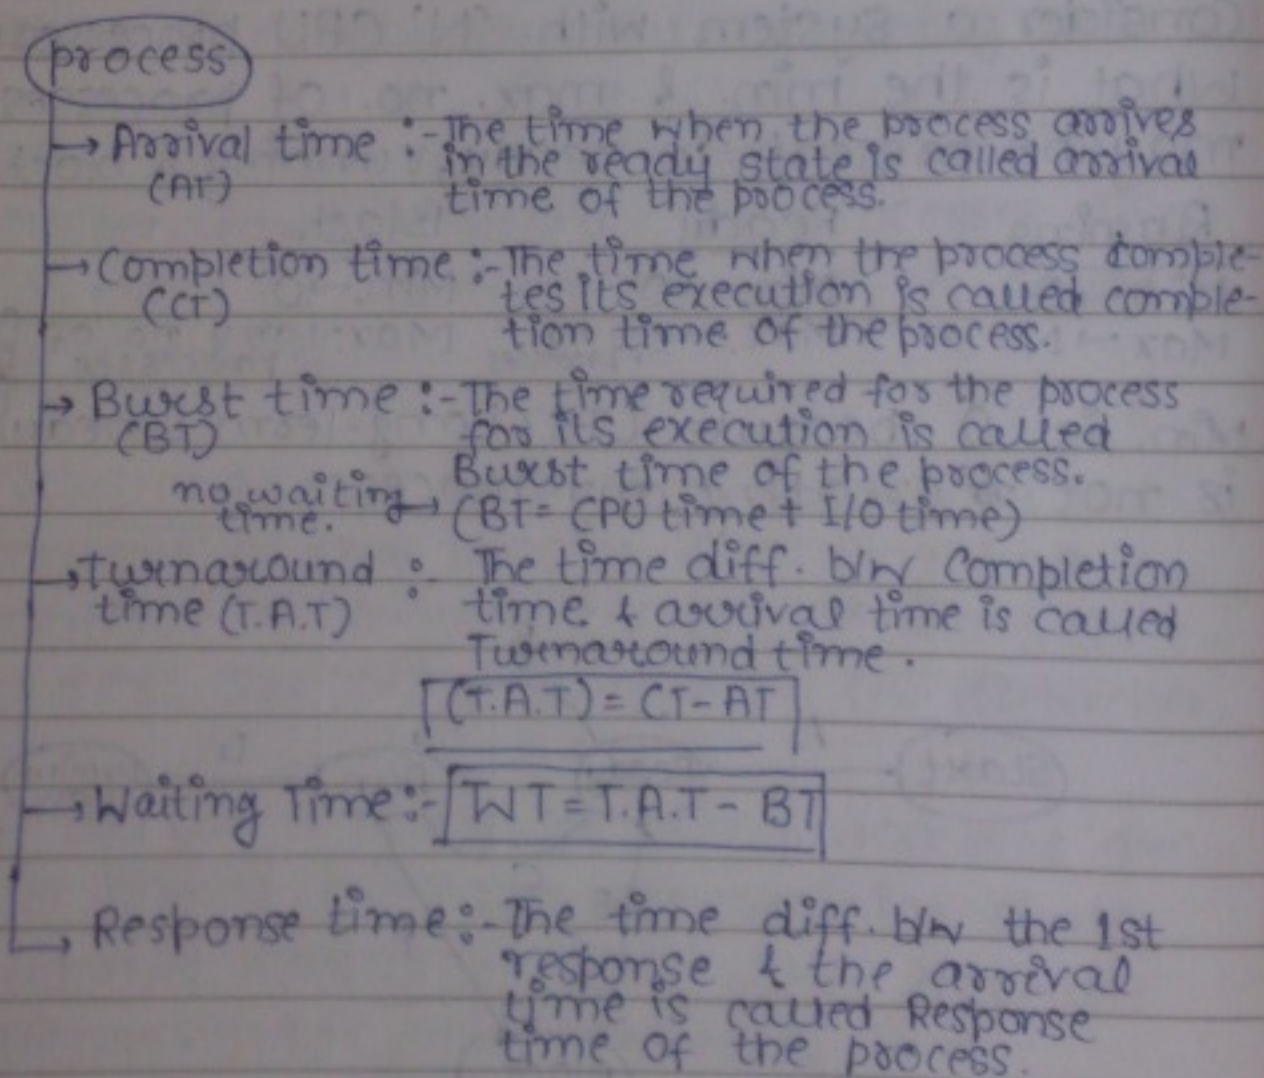 process
→ Arrival time :- The time when the process arrives
(AT) in the ready state is called arrival
time of the process.
→ Completion time :- The time when the process comple-
(CT) tes its execution is called comple-
tion time of the process.
→ Burst time :- The time required for the process
(BT) for its execution is called
Burst time of the process.
no waiting time. → (BT = CPU time + I/O time)
→ Turnaround :- The time diff. b/w Completion
time (T.A.T) time & arrival time is called
Turnaround time.
(T.A.T) = CT - AT
→ Waiting Time :- WT = T.A.T - BT
→ Response time :- The time diff. b/w the 1st
response & the arrival
time is called Response
time of the process.